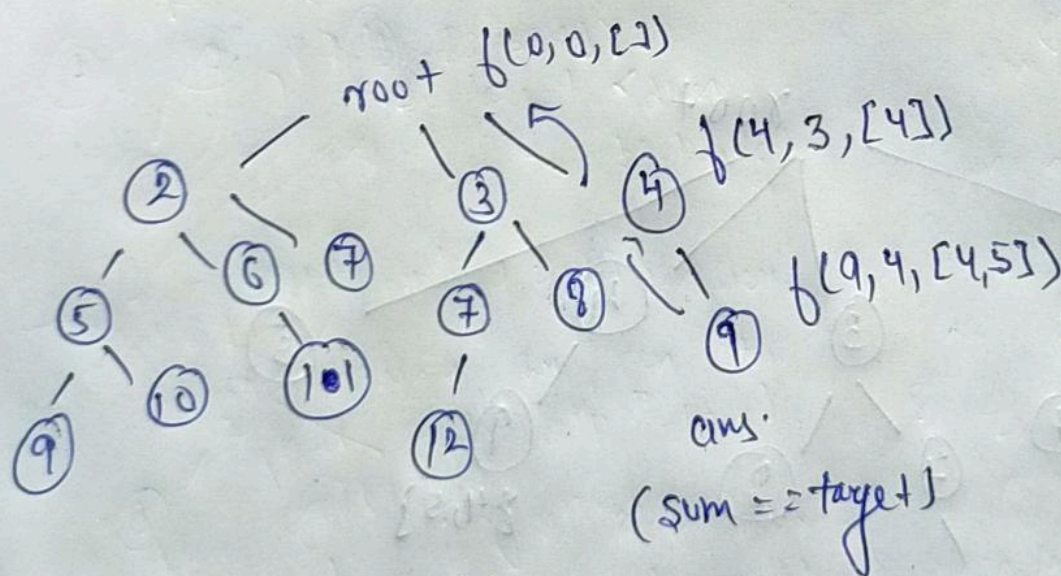 root f(0,0,[])
2 3 4 f(4,3,[4])
5 6 7 7 8 9 f(9,4,[4,5])
9 10 101 12
ans.
(sum == target)